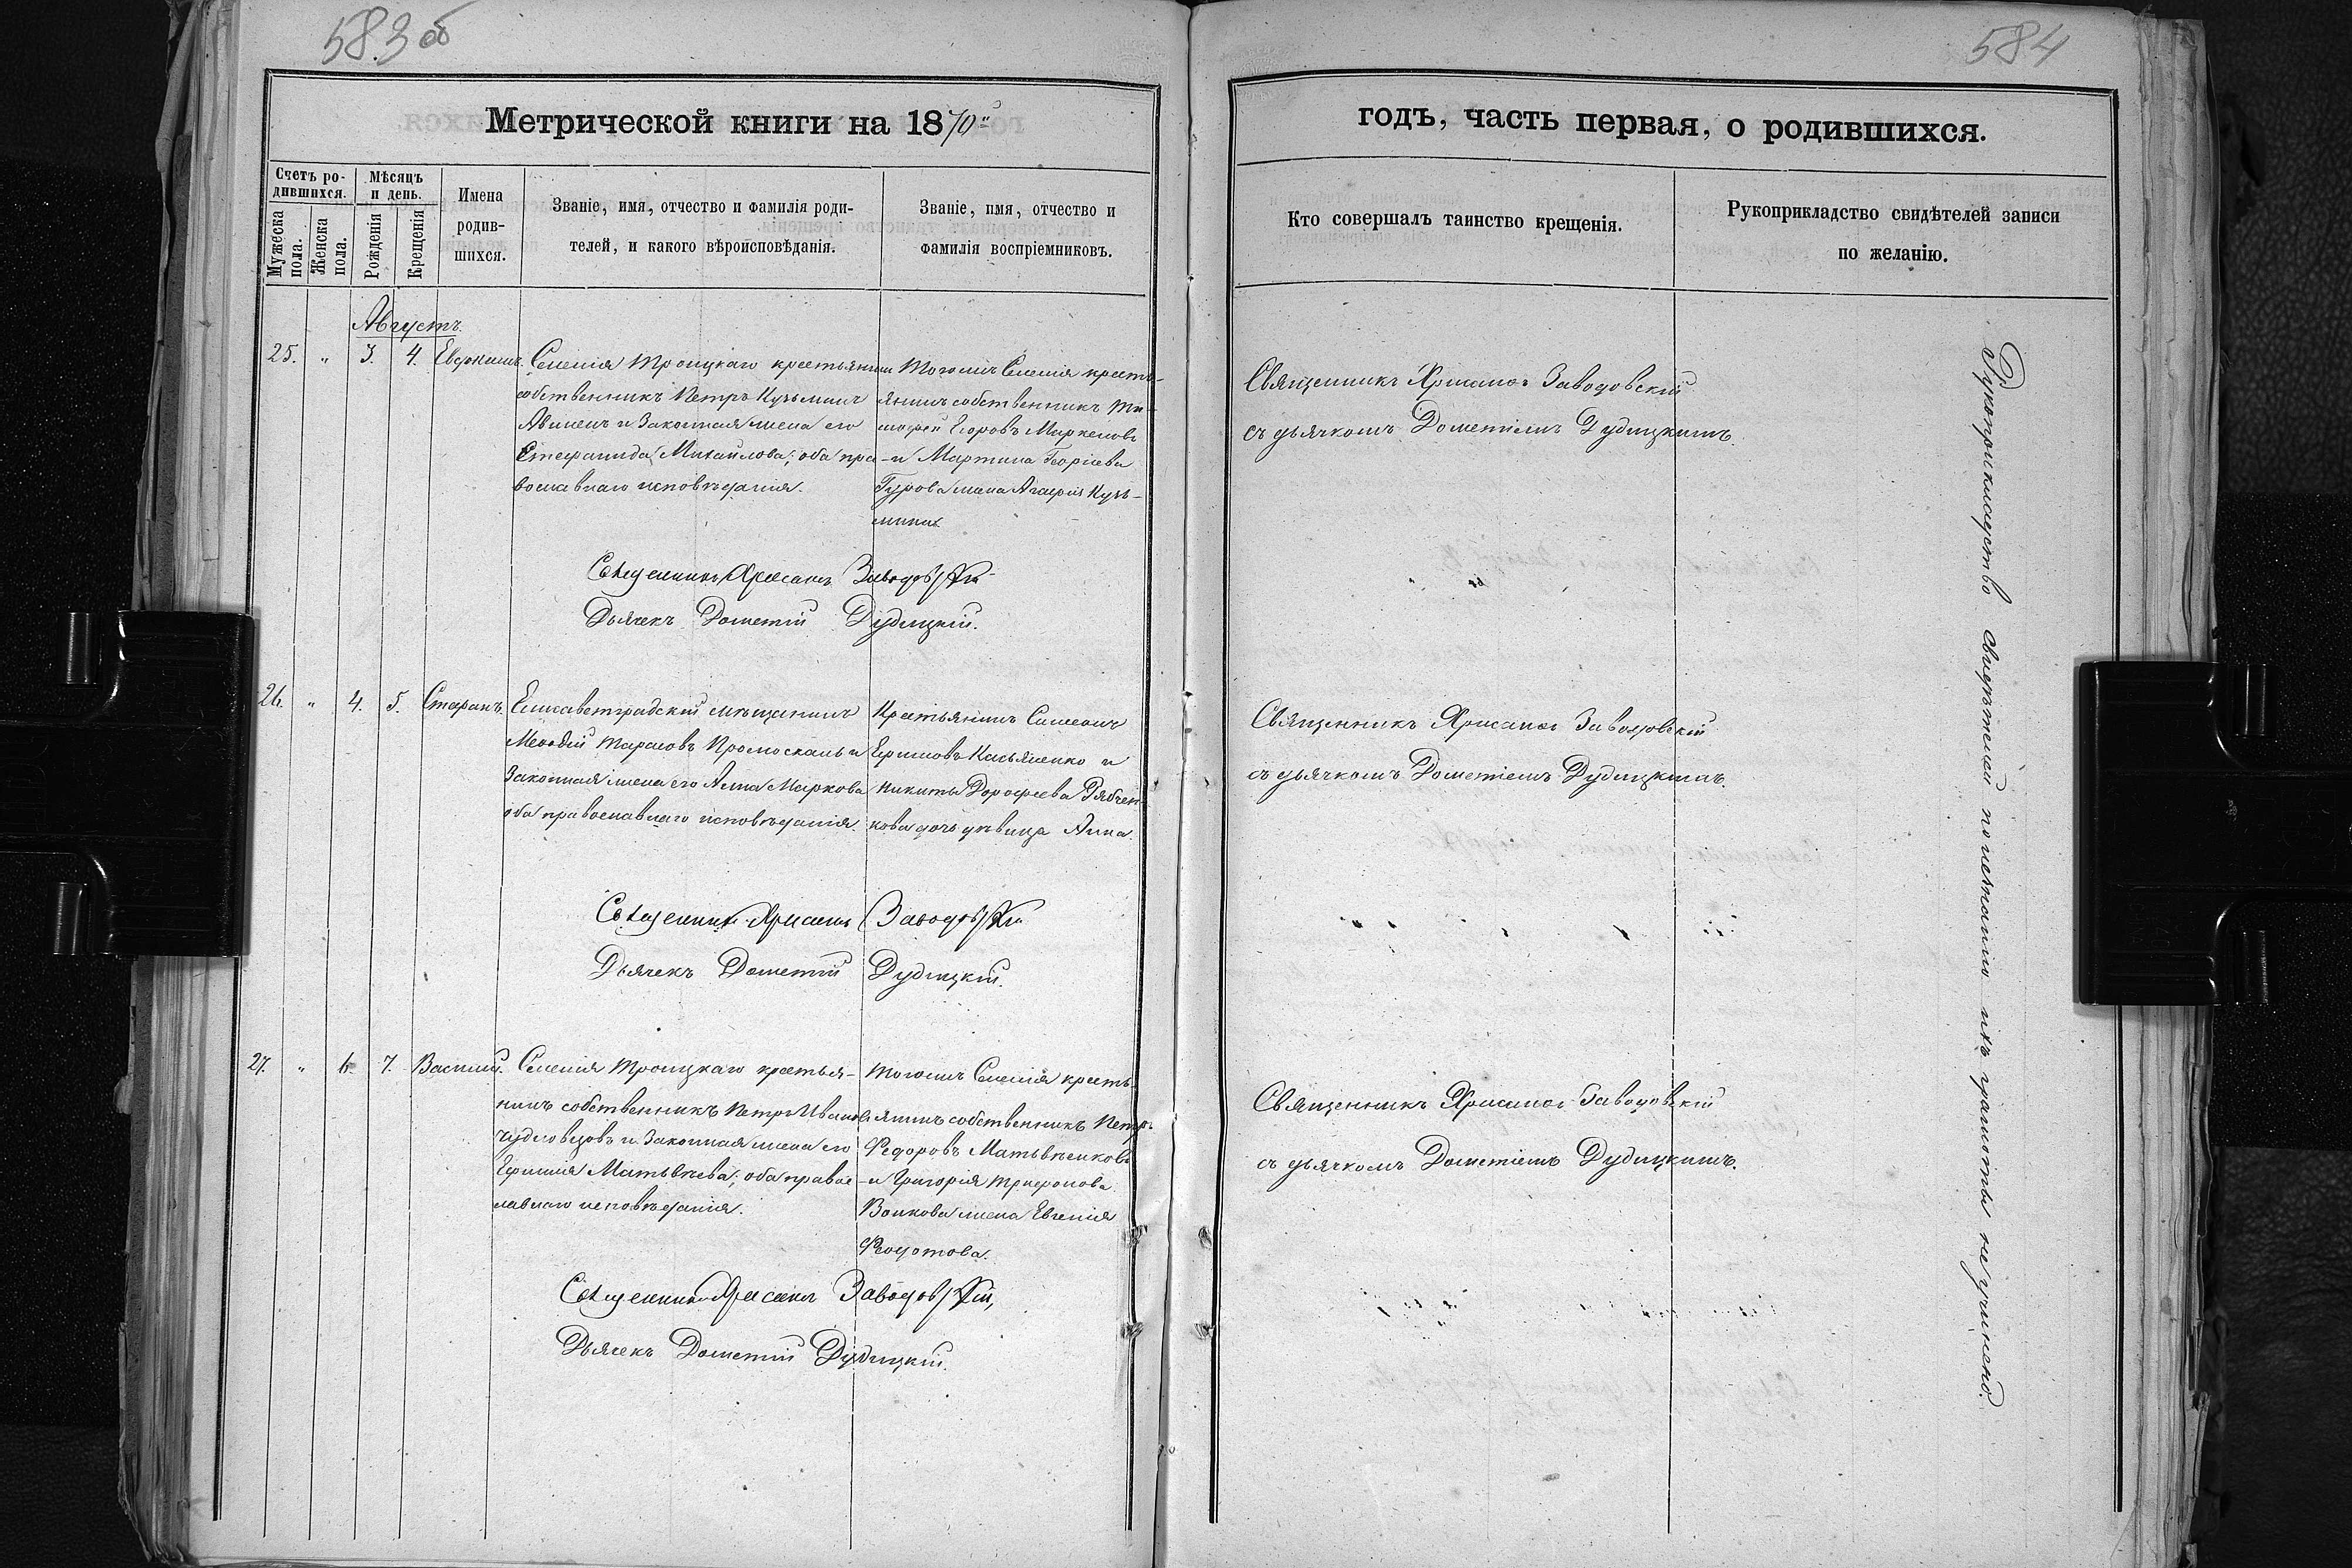 583 об
584
Метрической книги на 1870й
годъ, часть первая, о родившихся.
Счетъ ро-
дившихся.
Мужеска пола.
Женска пола.
Мѣсяцъ
и день.
Рожденія
Крещенія
Имена
родив-
шихся.
Званіе, имя, отчество и фамилія роди-
телей, и какого вѣроисповѣданія.
Званіе, имя, отчество и
фамилія воспріемниковъ.
Кто совершалъ таинство крещенія.
Рукоприкладство свидѣтелей записи
по желанію.
Августъ.
25. " 3. 4.
Селенія Троицкаго крестьянинъ
собственникъ Петръ Кузьминъ
и законная жена его
Стефанида Михайлова; оба пра-
вославнаго исповѣданія.
Тогожъ Селенія кресть-
янинъ собственникъ Ти-
мофей Егоровъ Маркеловъ
и Мартина Георгіева
Гурова жена Агафія Кузь-
мина
Священникъ Хрисанѳъ Заводовскій
съ дьячкомъ Дометіемъ Дудицкимъ.
Священникъ Хрисанѳъ Заводовскій
Дьячекъ Дометій Дудицкій.
26. " 4. 5. Стефанъ.
Елисаветградскій мѣщанинъ
Меѳодій Тарасовъ и
законная жена его Анна Маркова
оба православнаго исповѣданія.
Крестьянинъ Симеонъ
Касьяненко и
Никиты Дорофеева Рябчен-
кова дочь дѣвица Анна.
Священникъ Хрисанѳъ Заводовскій
съ дьячкомъ Дометіемъ Дудицкимъ.
Священникъ Хрисанѳъ Заводовскій
Дьячекъ Дометій Дудицкій.
27. " 6. 7. Василій.
Селенія Троицкаго крестья-
нинъ собственникъ Петръ Ивановъ
Чудновцовъ и законная жена его
Матвѣева; оба правос-
лавнаго исповѣданія.
Тогожъ Селенія кресть-
янинъ собственникъ Петръ
Федоровъ Матвѣенковъ
и Григорія Трифонова
Волкова жена Евгенія
Федотова.
Священникъ Хрисанѳъ Заводовскій
съ дьячкомъ Дометіемъ Дудицкимъ.
Священникъ Хрисанѳъ Заводовскій,
Дьячекъ Дометій Дудицкій.
Рукоприкладство свидѣтелей по незнанію ихъ грамоты не учинено.